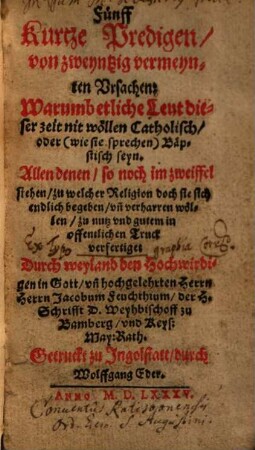 Fünff
Kurtze Predigen/
von zweyntzig vermeyn-
ten Vrsachen:
Warumb etliche Leut die-
ser zeit nit wöllen Catholisch/
oder (wie sie sprechen) Bäp-
stisch seyn.
Allen denen/ so noch im zweiffel
stehen/ zu welcher Religion doch sie sich
endlich begeben/ vñ verharren wöl-
len/ zu nutz vnd gutem in
offentlichen Truck
verfertiget
Durch weyland den Hochwirdi-
gen in Gott/ vñ hochgelehrten Herrn
Herrn Jacobum Feuchthum/ der H.
Schrifft D. Weyhbischoff zu
Bamberg/ vnd Keys:
May: Rath.
Getruckt zu Ingolstatt/ durch
Wolffgang Eder.
ANNO M D. LXXXV.
Conventus Ratisponensis
Ord. S. Augustini.